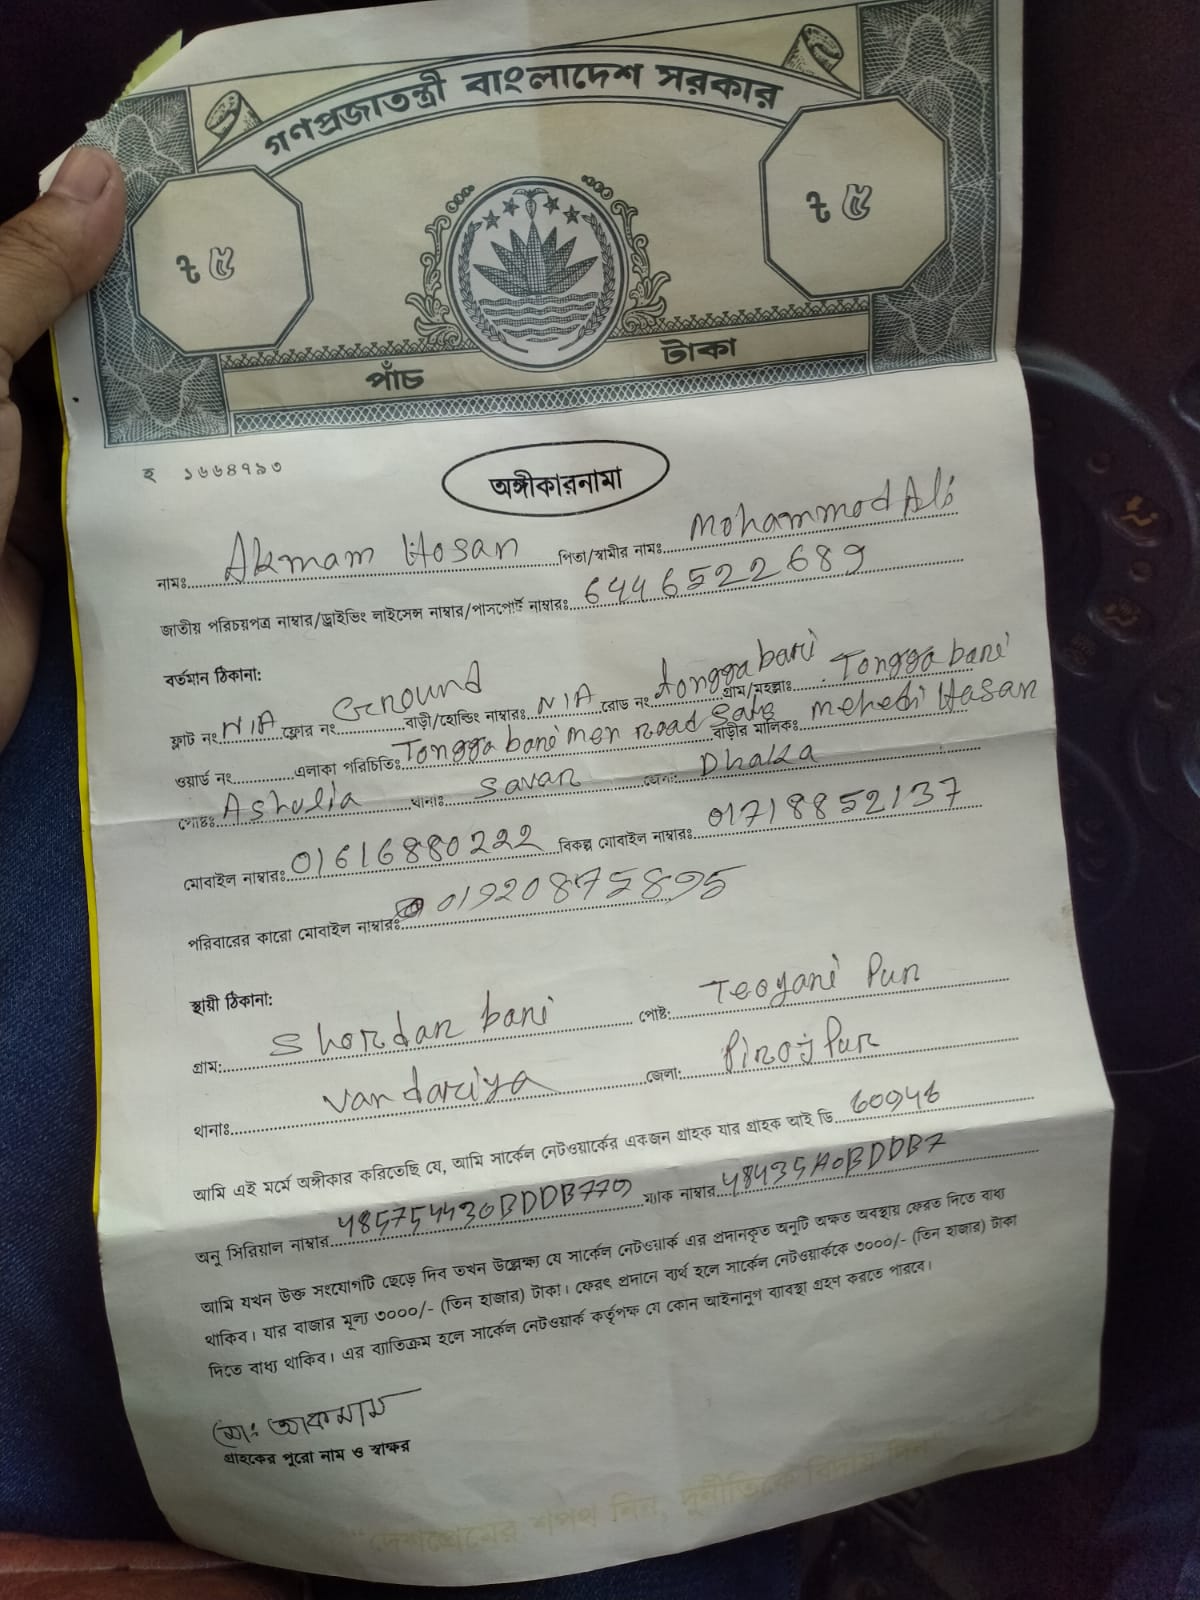 গণপ্রজাতন্ত্রী বাংলাদেশ সরকার
৳ ৫ ৳ ৫
পাঁচ টাকা
হ ১৬৬৪৭৯৩
অঙ্গীকারনামা
নামঃ Akmam Hosan পিতা/স্বামীর নামঃ Mohammod Ali
জাতীয় পরিচয়পত্র নাম্বার/ড্রাইভিং লাইসেন্স নাম্বার/পাসপোর্ট নাম্বারঃ 6446522689
বর্তমান ঠিকানা:
ফ্লাট নং N/A ফ্লোর নং Ground বাড়ী/হোল্ডিং নাম্বারঃ N/A রোড নং tonggabari গ্রাম/মহল্লাঃ Tongga bari
ওয়ার্ড নং এলাকা পরিচিতিঃ Tongga bari men Road বাড়ীর মালিকঃ mehedi Hasan
পোষ্টঃ Ashulia থানাঃ Savar জেলাঃ Dhaka
মোবাইল নাম্বারঃ 01616880222 বিকল্প মোবাইল নাম্বারঃ 01718852137
পরিবারের কারো মোবাইল নাম্বারঃ 01920875895
স্থায়ী ঠিকানা:
গ্রাম: Shordar bari পোষ্ট: Teoyari Pur
থানাঃ Vandariya জেলা: Piroj Pur
আমি এই মর্মে অঙ্গীকার করিতেছি যে, আমি সার্কেল নেটওয়ার্কের একজন গ্রাহক যার গ্রাহক আই ডি 60948
অনু সিরিয়াল নাম্বার 485754430BDDB779 ম্যাক নাম্বার 48435A0BDDB7
আমি যখন উক্ত সংযোগটি ছেড়ে দিব তখন উল্লেক্ষ্য যে সার্কেল নেটওয়ার্ক এর প্রদানকৃত অনুটি অক্ষত অবস্থায় ফেরত দিতে বাধ্য
থাকিব। যার বাজার মূল্য ৩০০০/- (তিন হাজার) টাকা। ফেরৎ প্রদানে ব্যর্থ হলে সার্কেল নেটওয়ার্ককে ৩০০০/- (তিন হাজার) টাকা
দিতে বাধ্য থাকিব। এর ব্যাতিক্রম হলে সার্কেল নেটওয়ার্ক কর্তৃপক্ষ যে কোন আইনানুগ ব্যাবস্থা গ্রহণ করতে পারবে।
মোঃ আকমাম
গ্রাহকের পুরো নাম ও স্বাক্ষর
"দেশপ্রেমের শপথ নিন, দুর্নীতিকে বিদায় দিন"